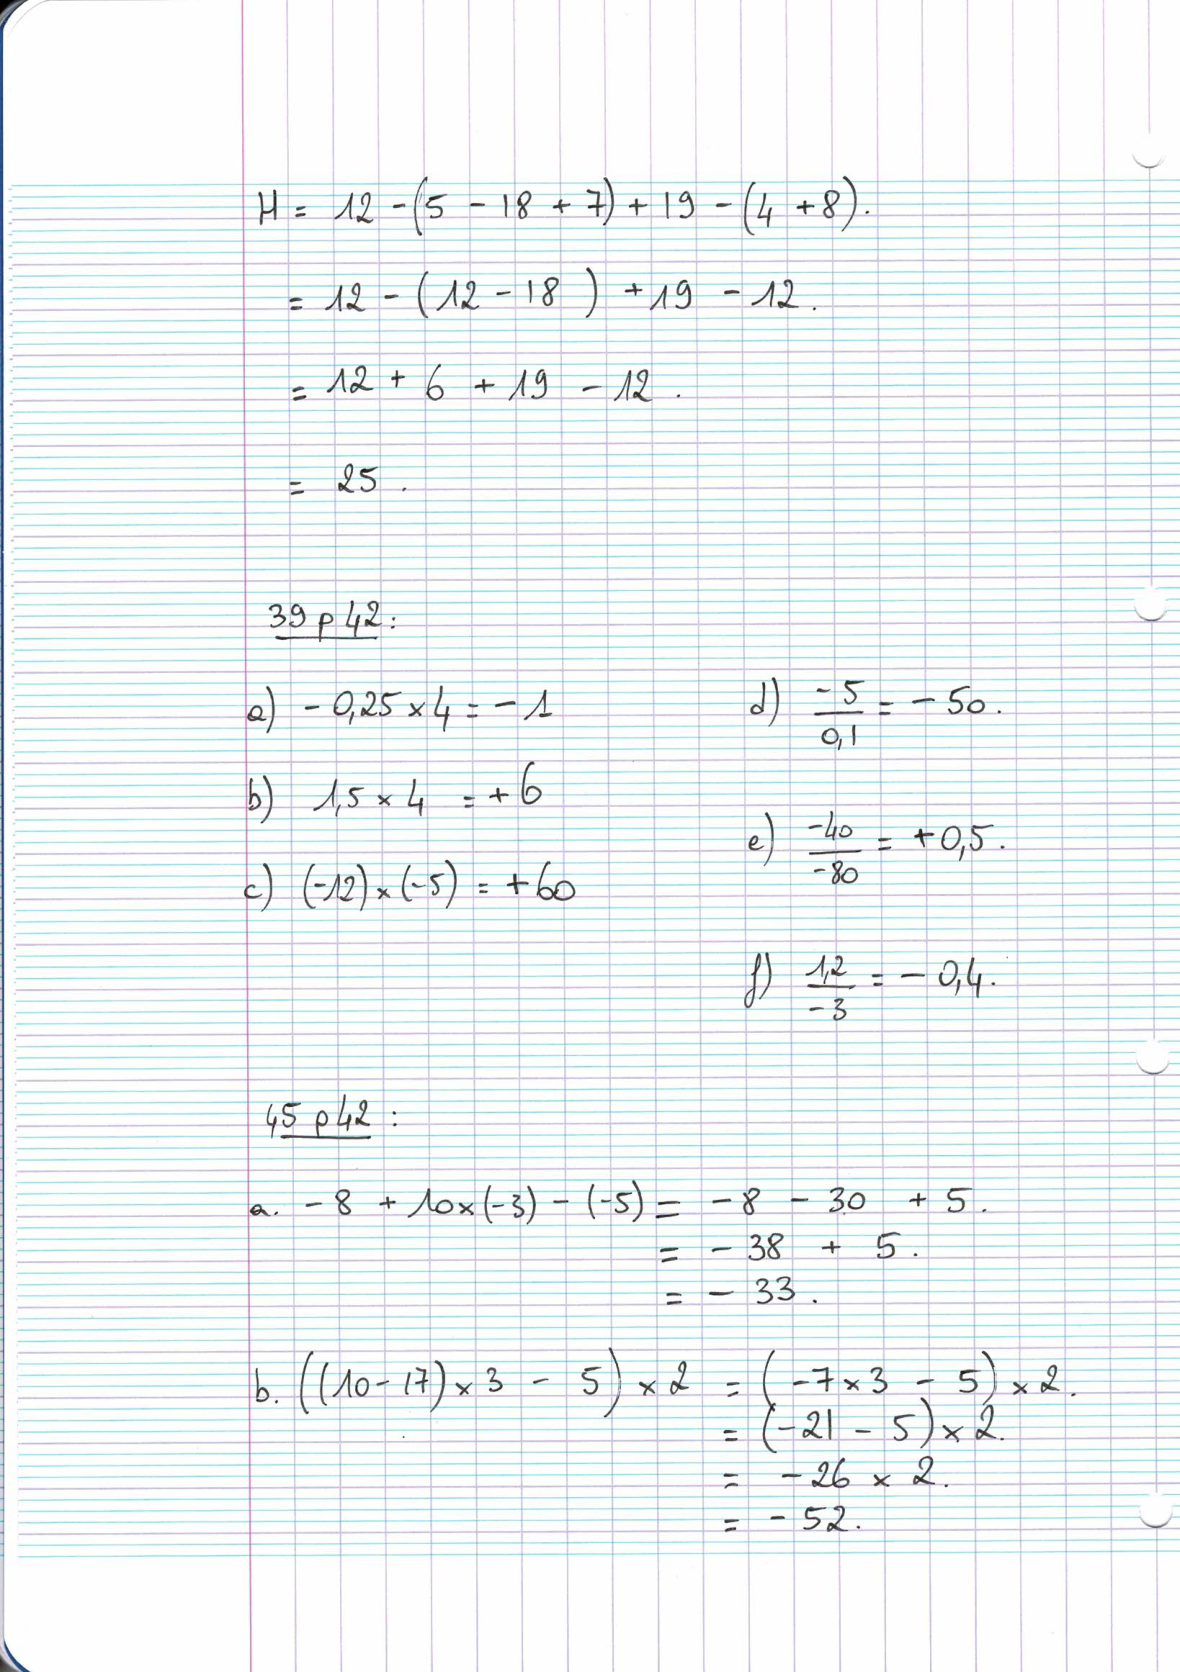 H = 12 - (5 - 18 + 7) + 19 - (4 + 8).
= 12 - (12 - 18) + 19 - 12.
= 12 + 6 + 19 - 12.
= 25.
39 p 42 :
a) - 0,25 × 4 = - 1
b) 1,5 × 4 = + 6
c) (-12) × (-5) = + 60
d) -5/0,1 = - 50.
e) -40/-80 = + 0,5.
f) 1,2/-3 = - 0,4.
45 p 42 :
a. - 8 + 10 × (-3) - (-5) = - 8 - 30 + 5.
= - 38 + 5.
= - 33.
b. ((10 - 17) × 3 - 5) × 2 = (-7 × 3 - 5) × 2.
= (-21 - 5) × 2.
= - 26 × 2.
= - 52.